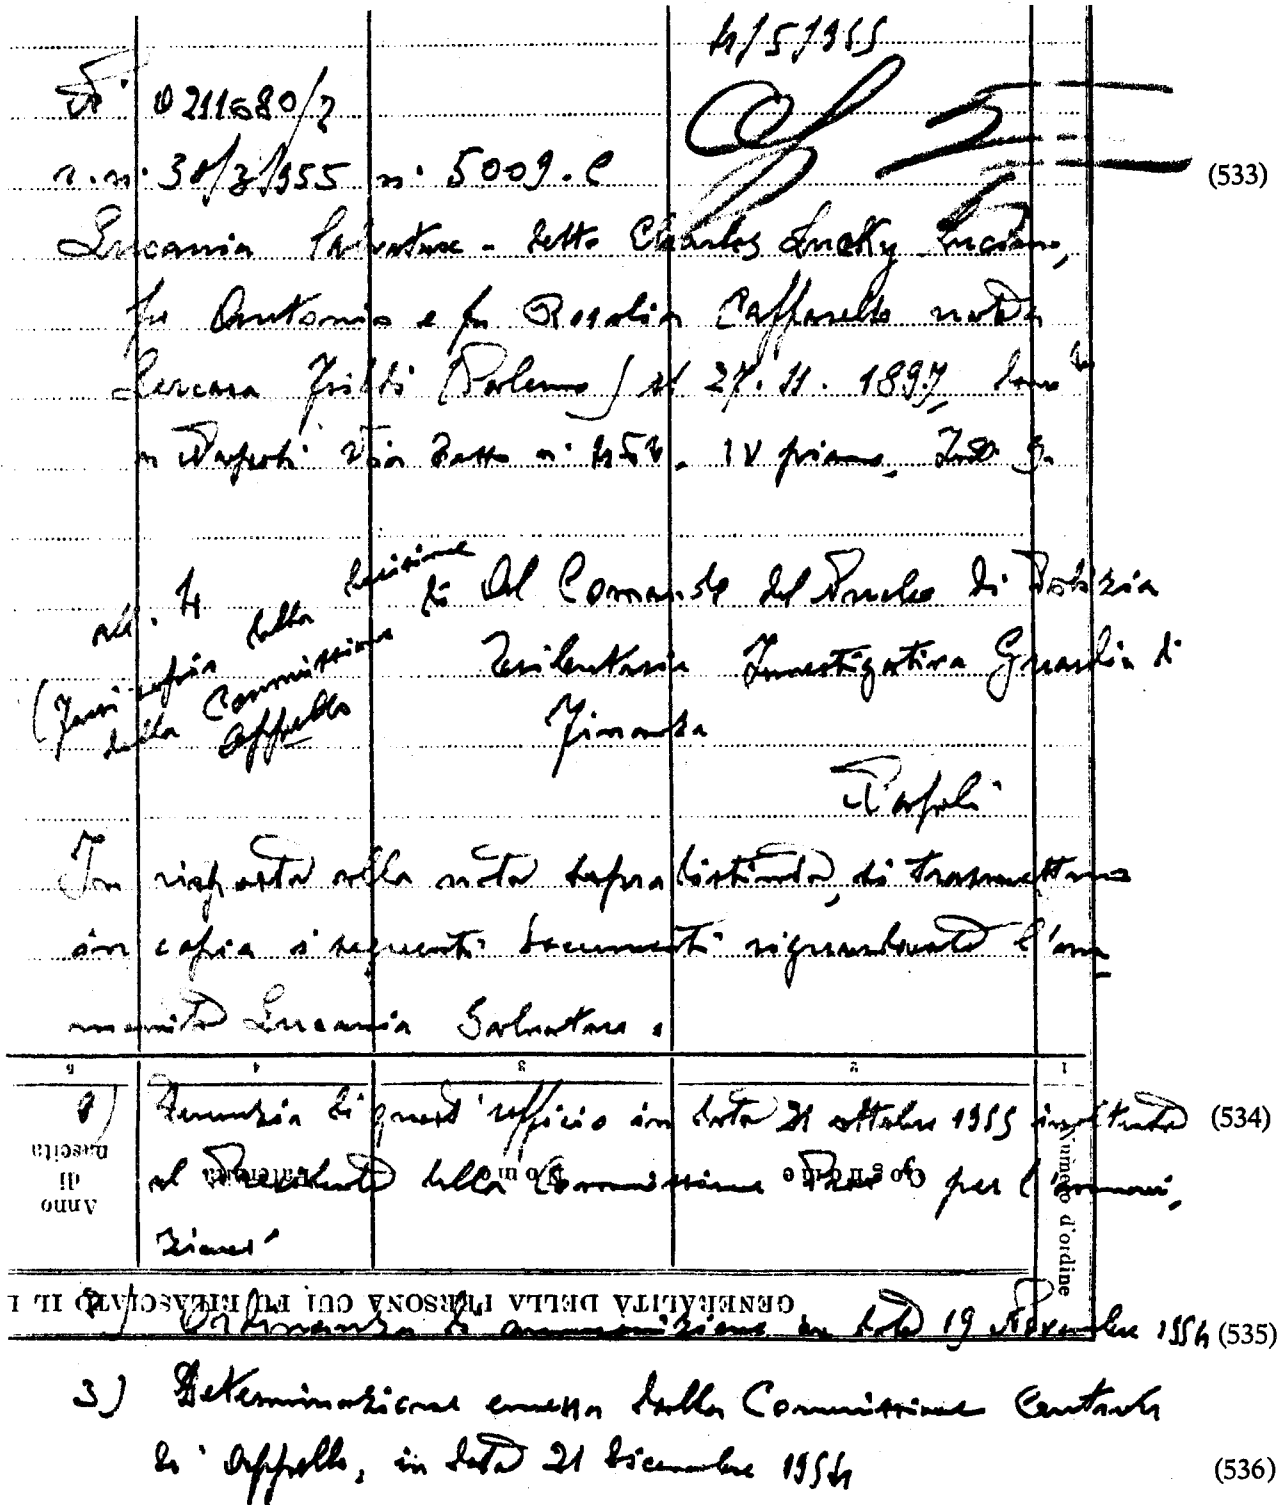 4/5/1955
N° 0211680/2
r.n. 30/3/1955 n. 5009.C
(533)
Lucania Salvatore - detto Charles Lucky Luciano,
fu Antonio e fu Rosalia Caffarello nato a
Lercara Friddi (Palermo) il 27.11.1897, dom to
a Napoli Via Tasso n. 454, IV piano, Int. 9.
all. 4
(fare copia della decisione di
della Commissione
Appello
Al Comando del Nucleo di Polizia
Tributaria Investigativa Guardia di
Finanza
Napoli
In risposta alla nota sopra distinta, si trasmettono
in copia i seguenti documenti riguardanti l'am
monito Lucania Salvatore.
5 4 3 2 1
1) Denunzia di quest'ufficio in data 21 ottobre 1955 inoltrata (534)
al Presidente della Commissione Prov per l'ammoni,
zione
Anno di nascita
Paternità
Nome
Cognome
Numero d'ordine
GENERALITÀ DELLA PERSONA CUI FU RILASCIATO IL
2) Ordinanza di ammonizione in data 19 Novembre 1954 (535)
3) Determinazione emessa dalla Commissione Centrale
di Appello, in data 21 dicembre 1954
(536)